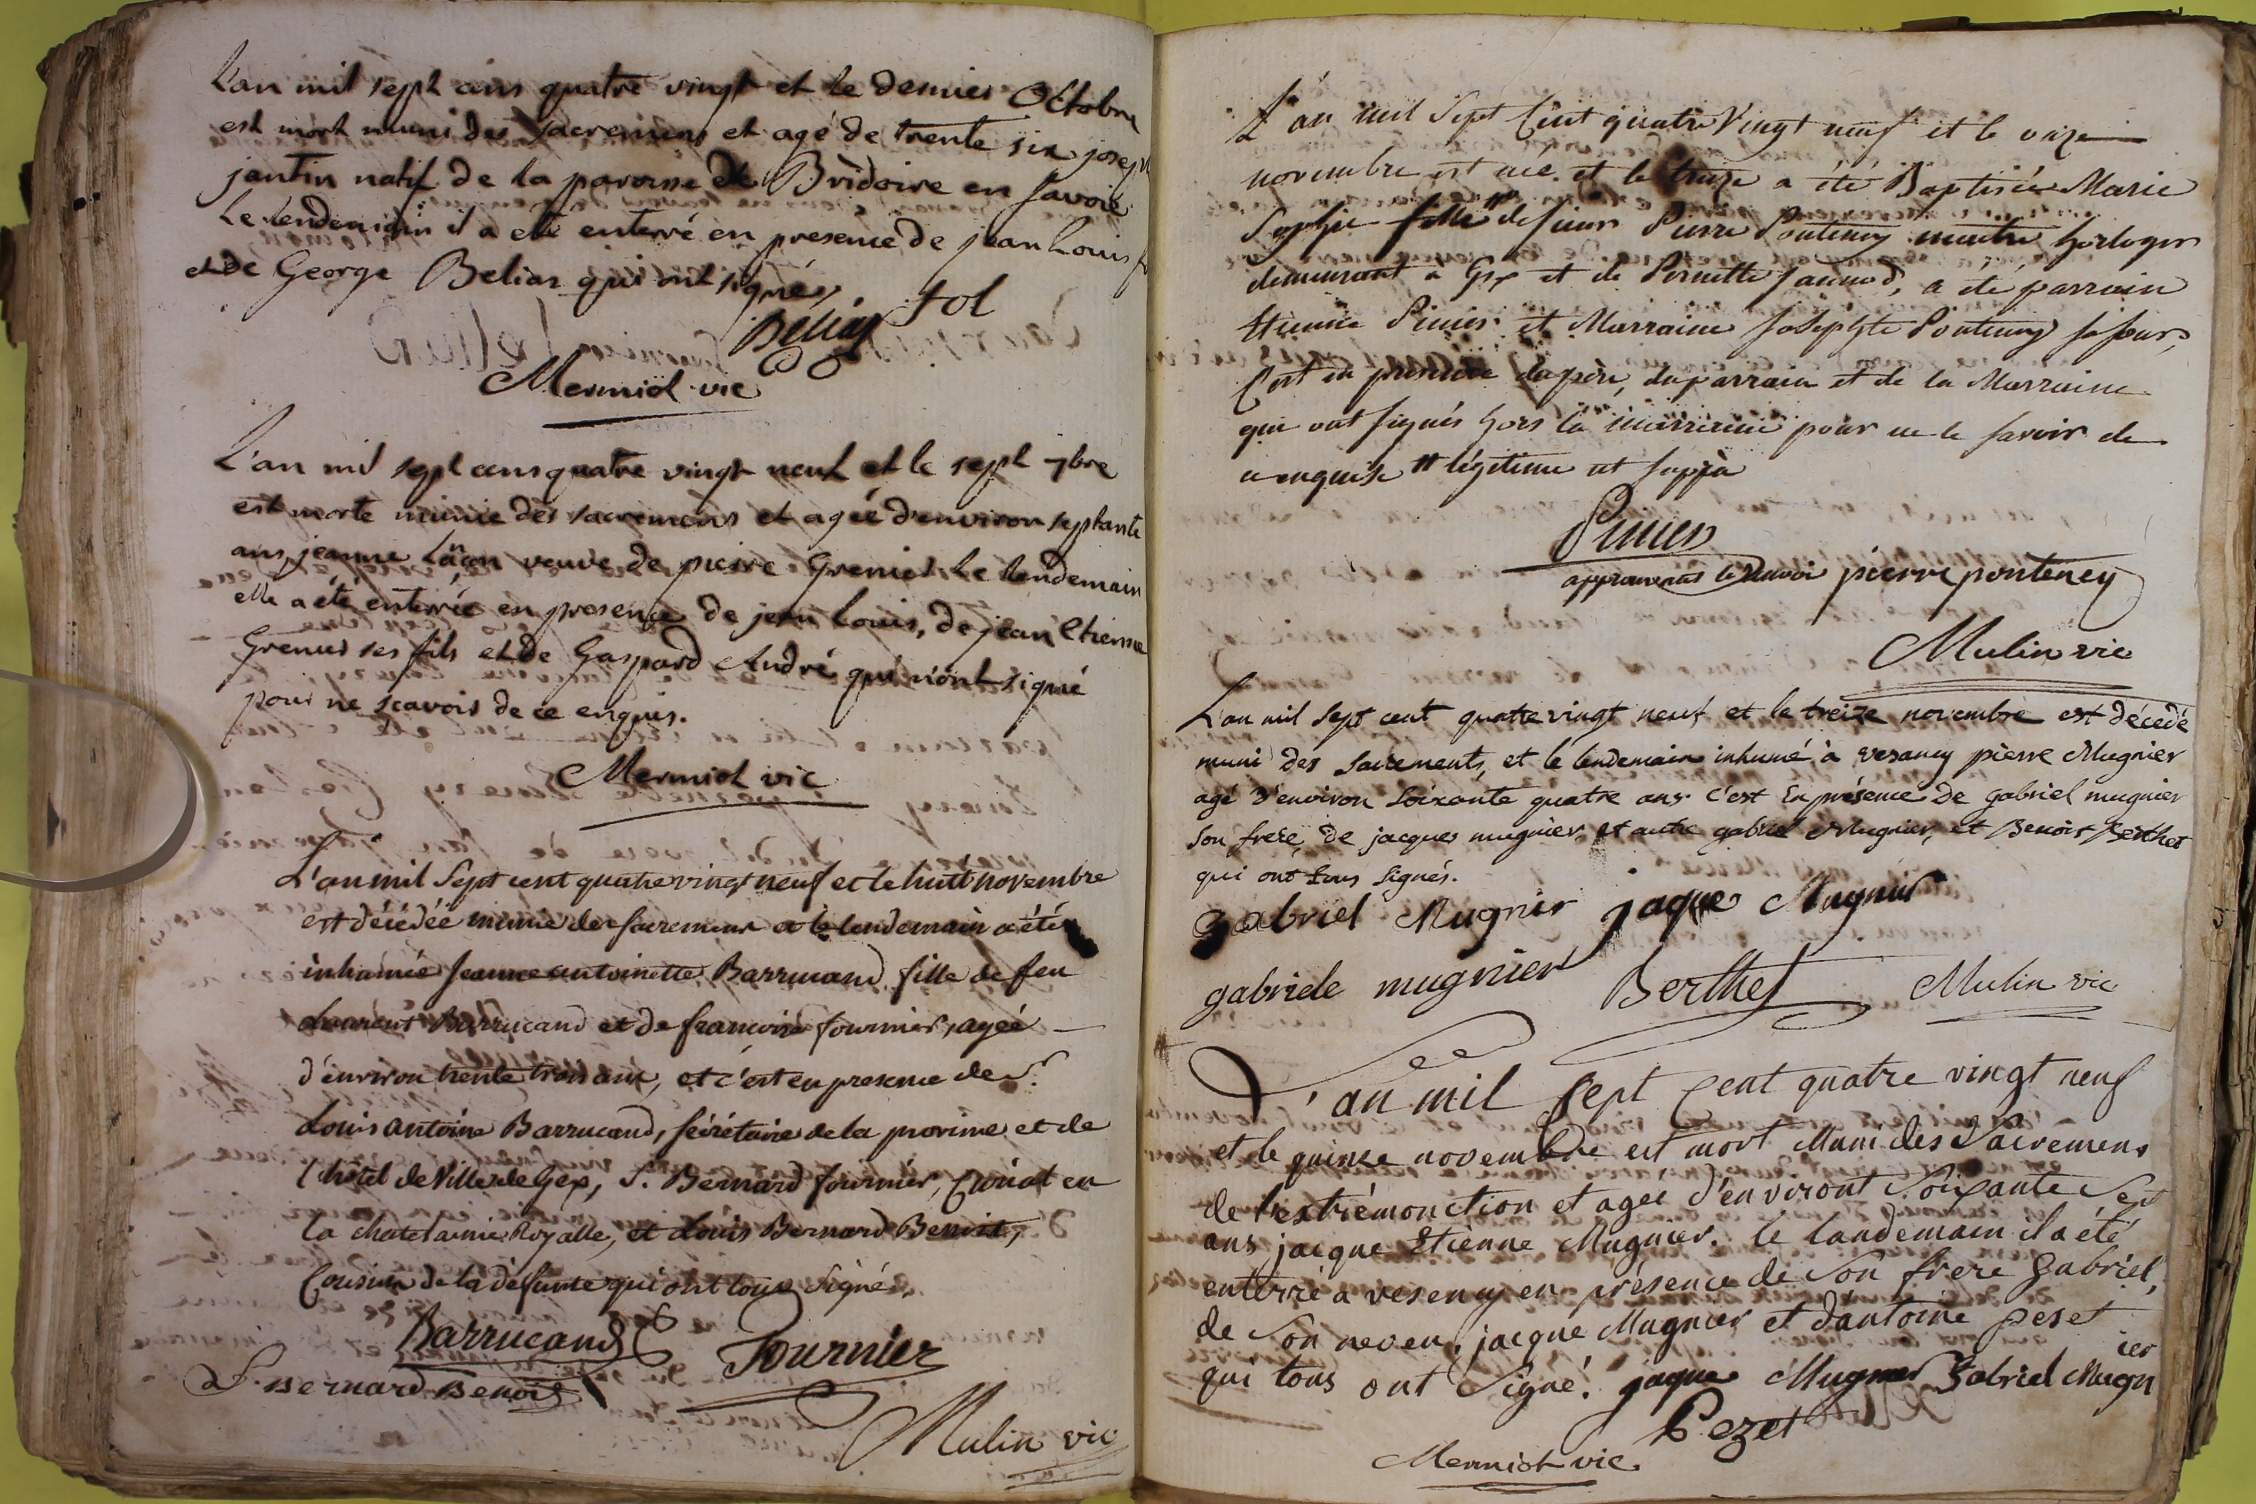 L'an mil sept cens quatre vingt et le dernier Octobre
est mort muni des sacremens et agé de trente six joseph
jantin natif de la paroisse de Bridoire en savoie
le lendemain il a eté enterré en presence de jean Louis
et de George Beliar qui ont signés
Beliar fol
Mermiol vic
L'an mil sept cens quatre vingt neuf et le sept 7bre
est morte munie des sacremens et agée d'environ septante
ans, jeanne Laçon veuve de pierre Grenier le lendemain
elle a été enterrée en presence de jean Louis, de jean Etienne
Grenier ses fils et de Gaspard André qui n'ont signé
pour ne scavoir de ce enquis.
Mermiol vic
L'an mil Sept cent quatre vingt neuf et le huit novembre
est décédée munie des sacremens et le lendemain a été
inhumée Jeanne antoinette Barrucand fille de feu
Laurent Barrucand et de francoise fournier, agée
d'environ trente trois ans, et c'est en presence de Sr.
Louis antoine Barrucand, sécrétaire de la province et de
l'hôtel de Ville de Gex, S. Bernard fournier, Curiat en
la chatelainie Royalle, et Louis Bernard Benoit,
Cousin de la défunte qui ont tous signés.
Barrucand Fournier
L. Bernard Benoit
Mulin vic
L'an mil Sept Cent quatre Vingt neuf et le onze
novembre est née et le treize a été Baptisée Marie
Sophie fille # de sieur Pierre Ponteney maitre horloger
demeurant à Gex et de Pernette Jaunod, a été parrain
Etienne Pinier et Marraine Josephte Ponteney sa soeur,
C'est en presence du père, du parrain et de la Marraine
qui ont signés hors la marraine pour ne le savoir de
ce enquise # légitime
Pinier
approuvant le renvoi pierre ponteney
Mulin vic
L'an mil sept cent quatre vingt neuf et le treize novembre est décedé
muni des sacrements, et le lendemain inhumé à vesancy pierre Mugnier
agé d'environ soixante quatre ans. c'est En présence De gabriel mugnier
son frere, de jacques mugnier, et autre gabriel Mugnier, et Benoit Berthet
qui ont tous signés.
gabriel Mugnier jaque Mugnier
gabriele mugnier Berthet Mulin vic
L'an mil sept Cent quatre vingt neuf
et le quinze novembre est mort Muni des Sacremens
de l'extrémonction et agee d'environt Soixante Sept
ans jacque Etienne Mugnier. le landemain il a été
enterré a vesency en présence de Son frere gabriel,
de Son neveu, jacque Mugnier et d'antoine peset
qui tous ont Signé. jaque Mugnier Gabriel Mugnier
Pezet
Mermiol vic